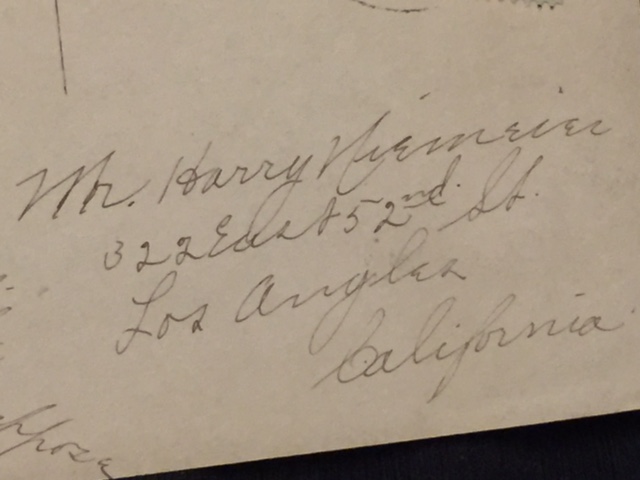 Mr. Harry Niemeier
322 East 52nd. St.
Los Angles
California